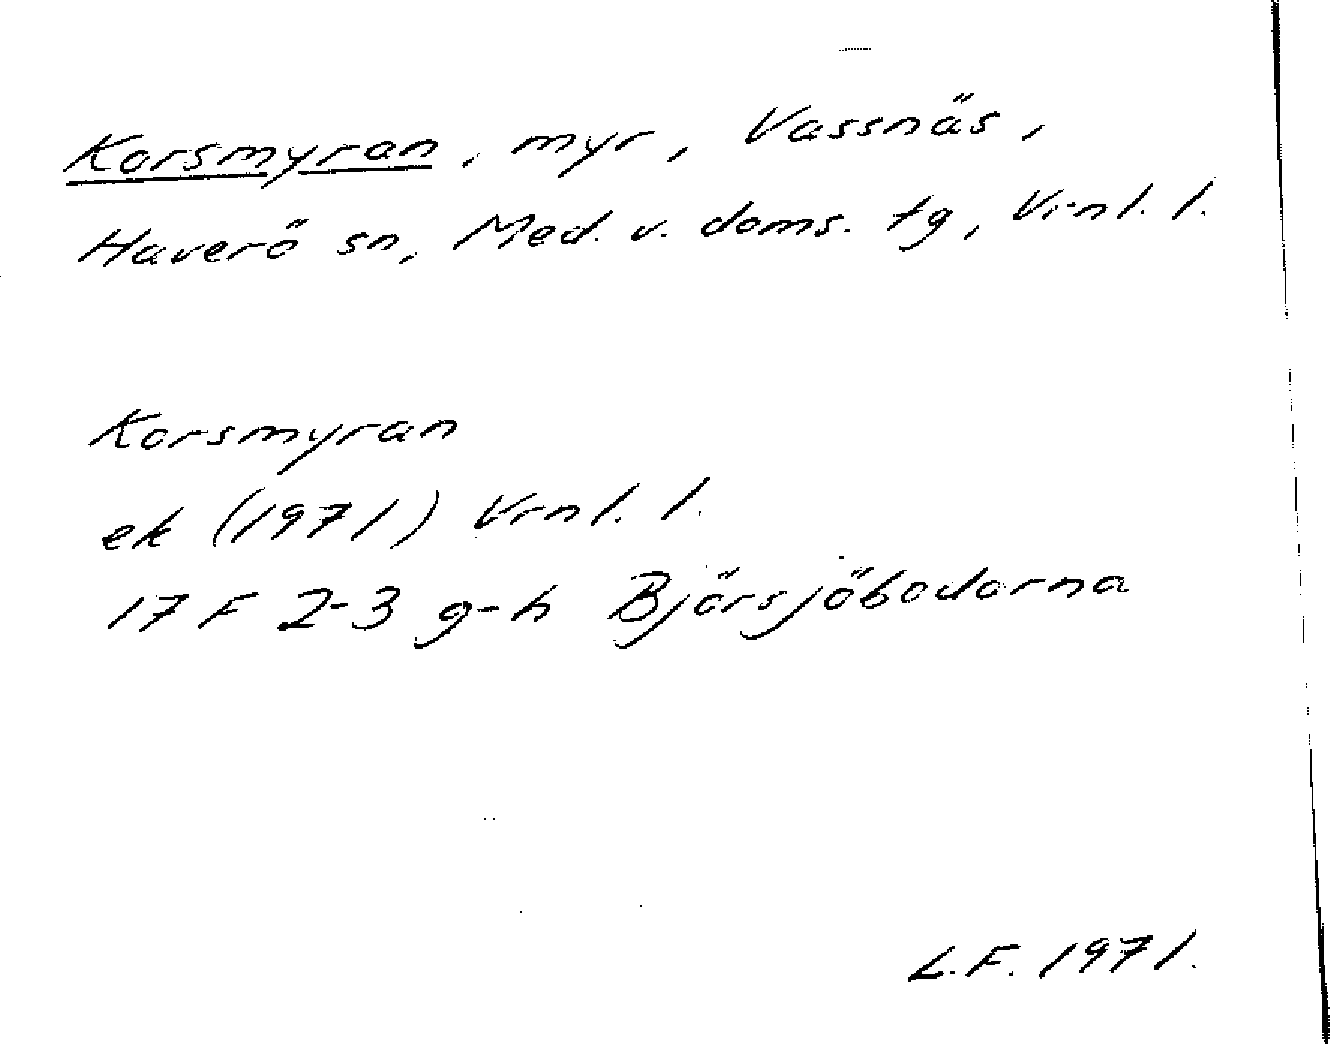 Korsmyran, myr, Vassnäs,
Haverö sn, Med. v. doms. tg, Vrnl. l.
Korsmyran
ek (1971) Vrnl. l.
17 F 2-3 g-h Björsjöbodarna
L.F. 1971.